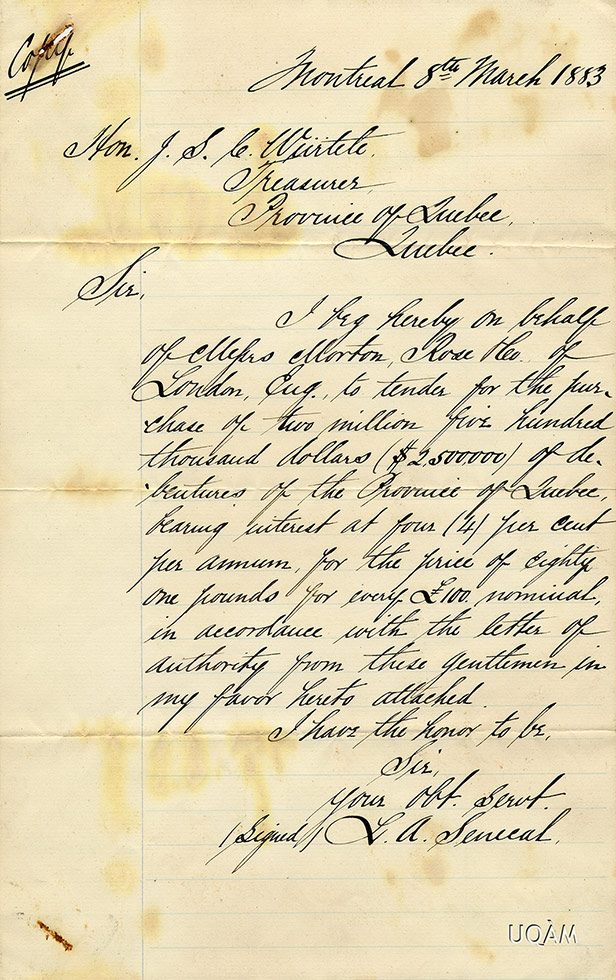 Copy
Montreal 8th March 1883
Hon. J. S. C. Würtele.
Treasurer
Province of Quebec,
Quebec.
Sir,
I beg hereby on behalf
of Messrs Morton, Rose & Co. of
London, Eng., to tender for the pur-
chase of two million five hundred
thousand dollars ($2,500000) of de-
bentures of the Province of Quebec,
bearing interest at four (4) per cent
per annum, for the price of eighty
one pounds for every £100. nominal,
in accordance with the letter of
authority from these gentlemen in
my favor hereto attached.
I have the honor to be,
Sir,
Your Obt. Servt.
(Signed) L. A. Senecal.
UQÀM